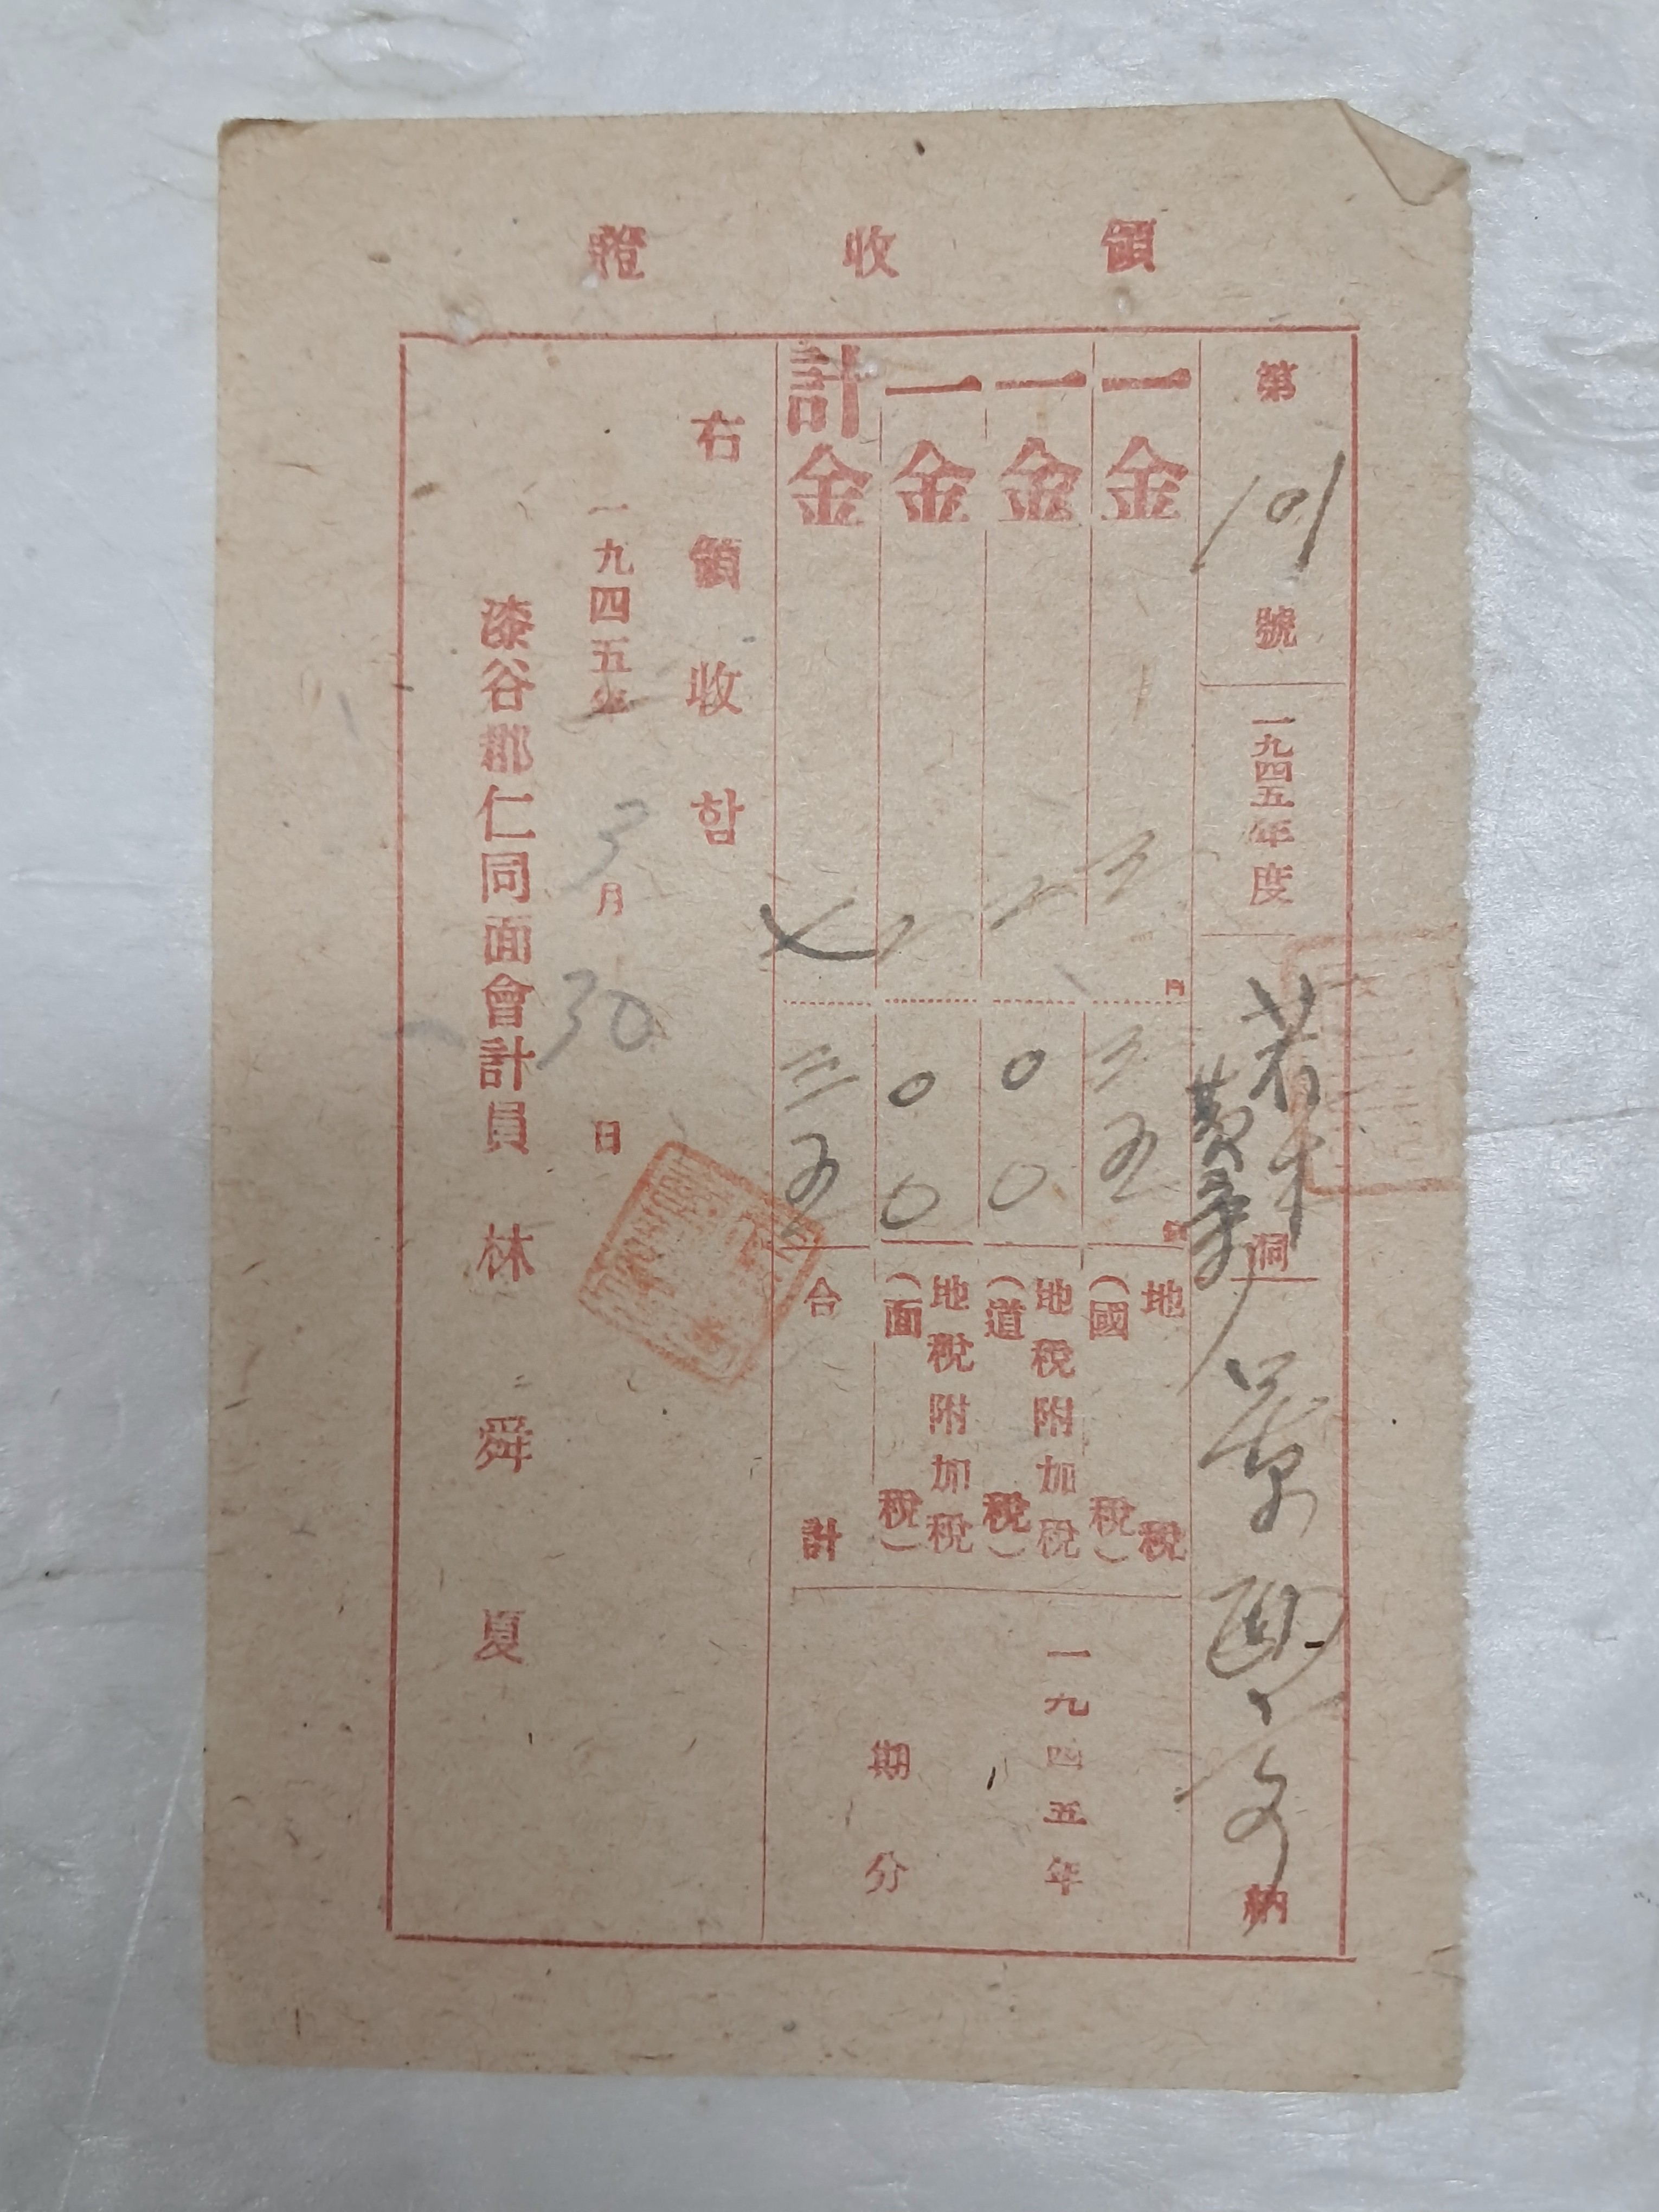 領收證
第101號 一九四五年度 若木洞 納
一金 三円三五錢 地稅(國稅)
一金 二 00 地稅附加稅(道稅)
一金 二 00 地稅附加稅(面稅)
計金 七 三五 合計
一九四五年
期分
右領收함
一九四五年 3月 30日
漆谷郡仁同面會計員 林舜夏